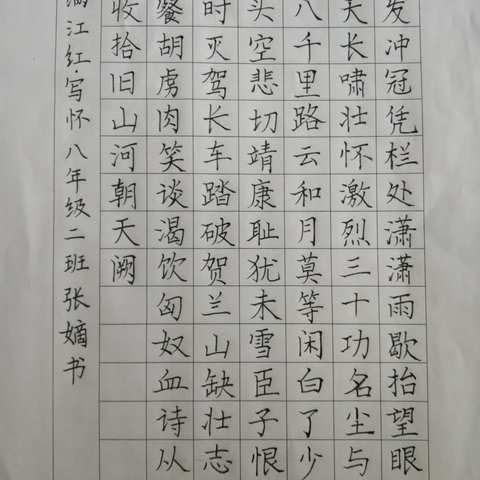 发冲冠凭栏处潇潇雨歇抬望眼
天长啸壮怀激烈三十功名尘与
八千里路云和月莫等闲白了少
头空悲切靖康耻犹未雪臣子恨
时灭驾长车踏破贺兰山缺壮志
餐胡虏肉笑谈渴饮匈奴血诗从
收拾旧山河朝天阙
满江红·写怀八年级二班张嫡书